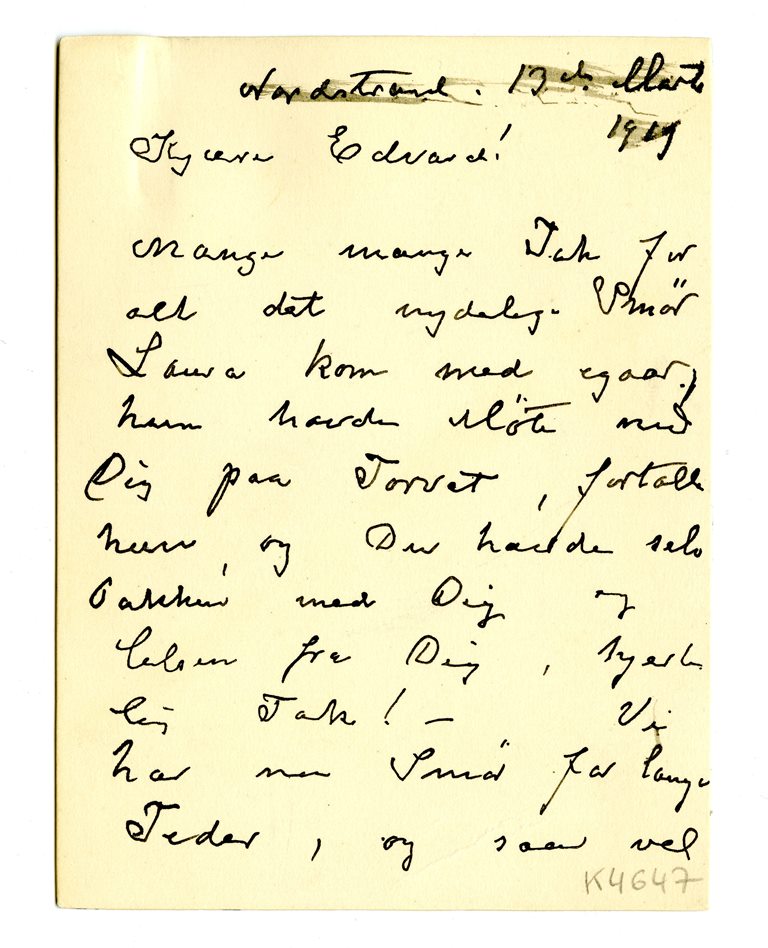 Nordstrand. 13de Marts
1919
Kjære Edvard!
Mange mange Tak for
alt det nydelige Smör
Laura kom med igaar.,
hun havde Möte med
Dig paa Torvet, fortalte
hun, og Du havde selv
Pakken med Dig og
lelsen fra Dig, hjerte
lig Tak! – Vi
har nu Smör for lange
Tider, og saa vel
K4647